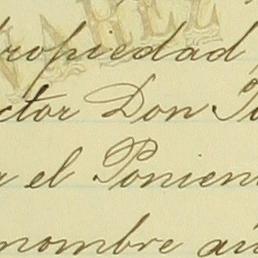 ropiedad
ctor Don
el Ponien
nombre